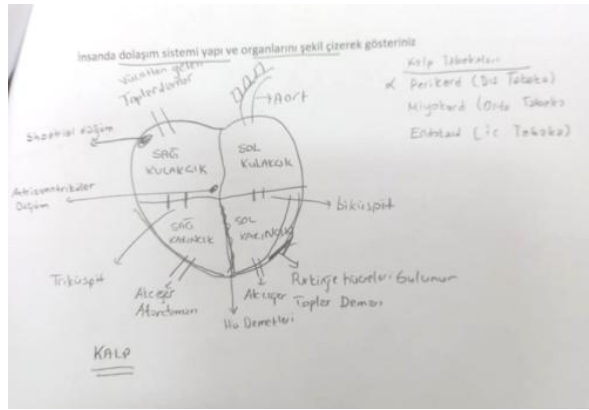 İnsanda dolaşım sistemi yapı ve organlarını şekil çizerek gösteriniz
Vücuttan gelen
Toplerdamar
Aort
Kalp Tabakaları
Perikard (Dış Tabaka)
Miyokard (Orta Tabaka
Endokard (İç Tabaka)
Düğüm
SAĞ
KULAKÇIK
SOL
KULAKÇIK
Atrioventriküler
Düğüm
biküspit
SAĞ
KARINCIK
SOL
KARINCIK
Triküspit
Akciğer
Atardamarı
Akciğer
Toplar Damarı
Purkinje hücreleri bulunur
His Demetleri
KALP